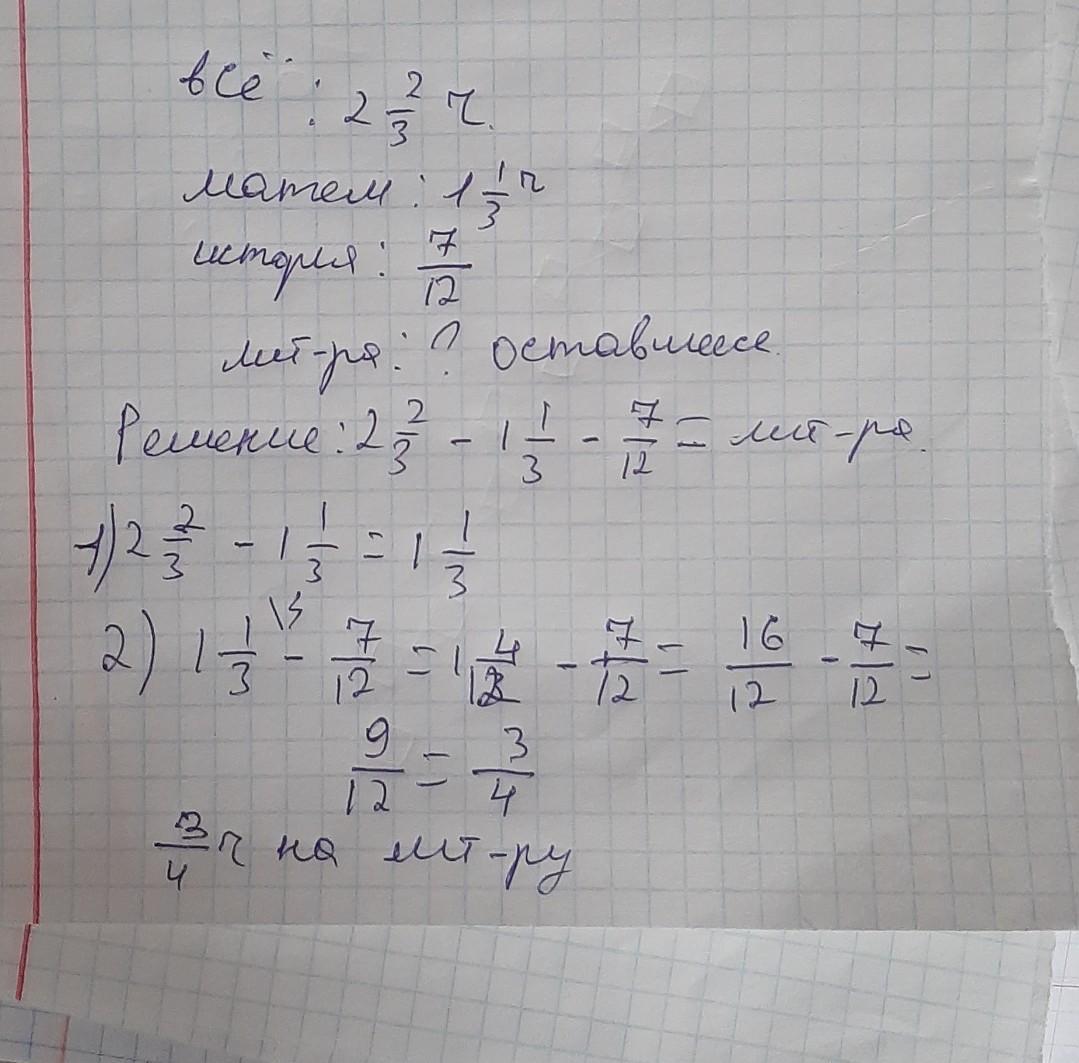 всё : 2 2/3 ч.
матем : 1 1/3 ч
история : 7/12
лит-ра : ? оставшееся.
Решение : 2 2/3 - 1 1/3 - 7/12 = лит-ра.
1) 2 2/3 - 1 1/3 = 1 1/3
2) 1 1/3 - 7/12 = 1 4/12 - 7/12 = 16/12 - 7/12 =
9/12 = 3/4
3/4 ч на лит-ру